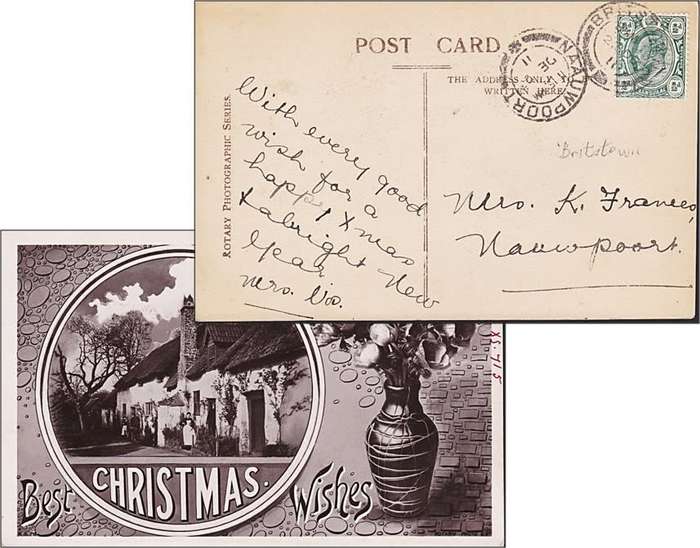 POST CARD
THE ADDRESS ONLY TO
WRITTEN HERE
ROTARY PHOTOGRAPHIC SERIES.
With every good
wish for a
happy Xmas
& a bright New
Year
Mrs.
NAAUWPOORT
DE
11
Britstown
Mrs. K. Frances,
Nauwpoort.
XS. 715
Best CHRISTMAS. Wishes